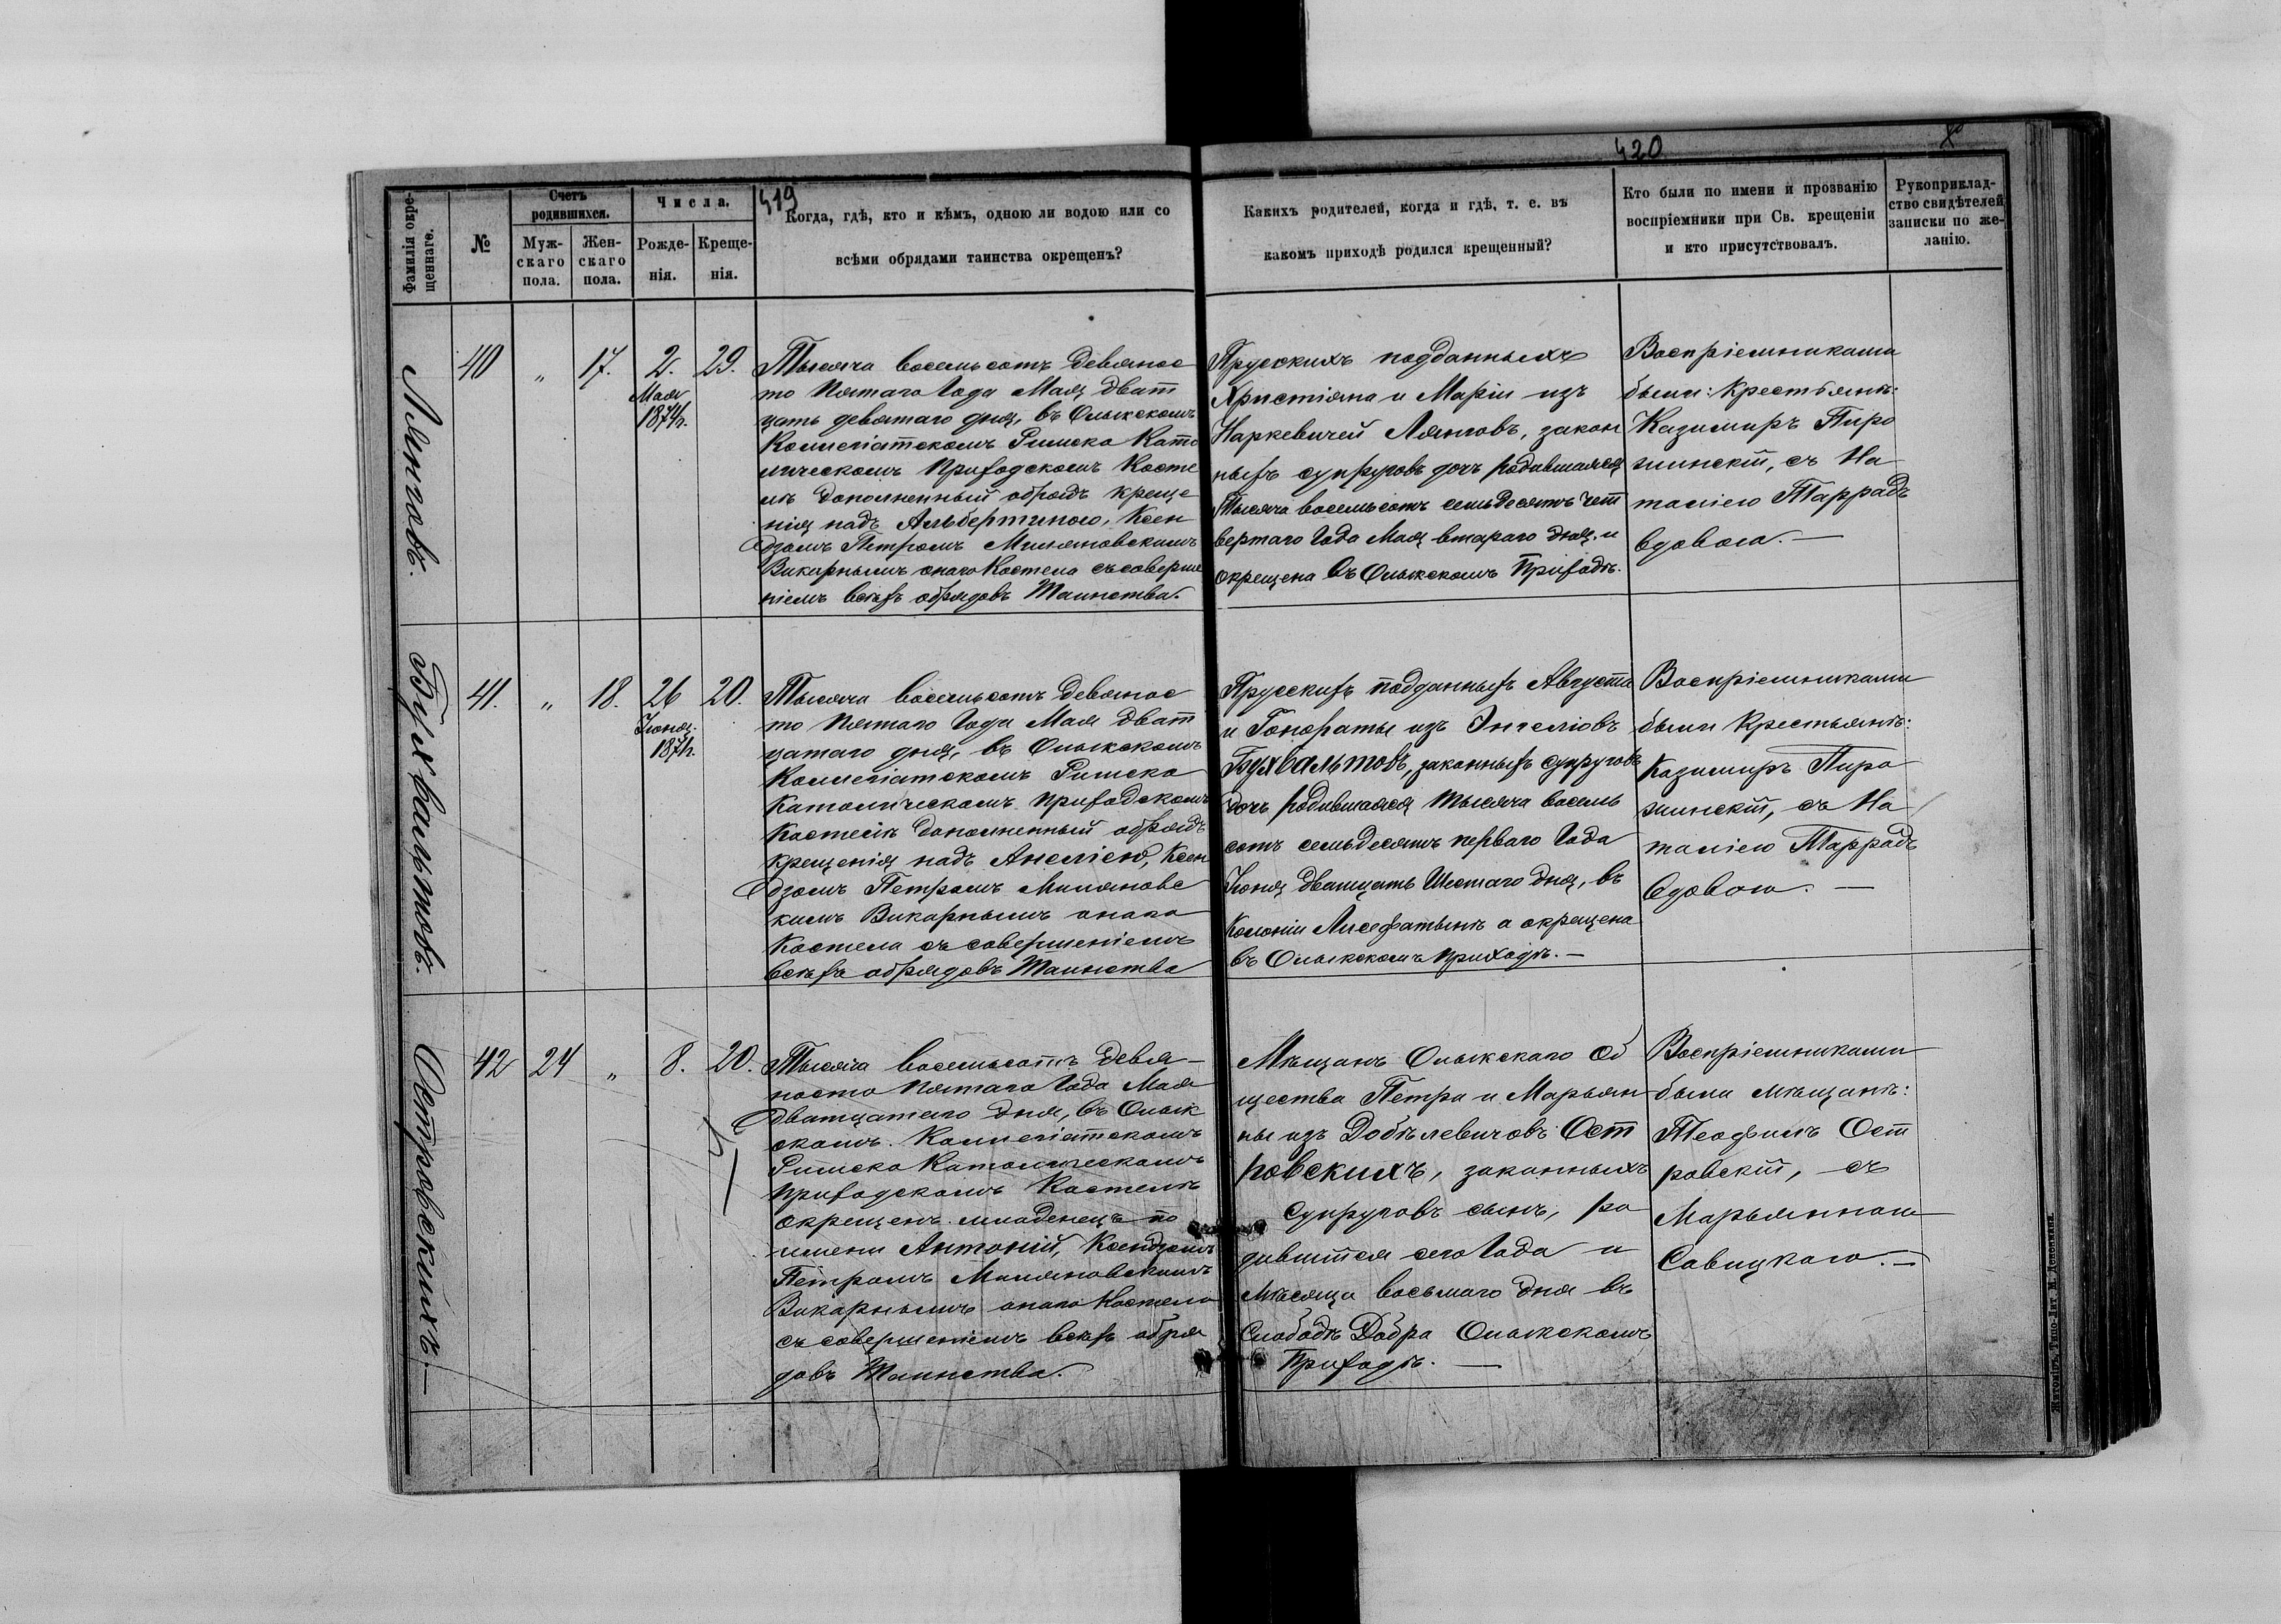 419
420
Фамилія окре-
щеннаго.
№
Счетъ
родившихся.
Муж-
скаго
пола.
Жен-
скаго
пола.
Числа.
Рожде-
нія.
Креще-
нія.
Когда, гдѣ, кто и кѣмъ, одною ли водою или со
всѣми обрядами таинства окрещенъ?
Какихъ родителей, когда и гдѣ, т. е. въ
какомъ приходѣ родился крещенный?
Кто были по имени и прозванію
воспріемники при Св. крещеніи
и кто присутствовалъ.
Рукоприклад-
ство свидѣтелей
записки по же-
ланію.
Лянговъ.
40
„
17.
2.
Мая
1874г.
29.
Тысяча восемьсотъ девянос
то Пятаго Года Мая дват
цать девятаго дня, въ Олыкскомъ
Коллегіатскомъ Римско Като
лическомъ Приходскомъ Косте
лѣ дополненный обрядъ креще
нія надъ Альбертиною, Ксен
дзомъ Петромъ Миляновскимъ
Викарнымъ онаго Костела съ соверше
ніемъ всѣхъ обрядовъ Таинства.
Прусскихъ подданныхъ
Христіяна и Маріи изъ
Наркевичей Лянговъ, закон
ныхъ супруговъ дочь родившаяся
Тысяча восемьсотъ семьдесятъ чет
вертаго Года Мая втораго дня, и
окрещена въ Олыкскомъ Приходѣ.
Воспріемниками
были: Крестьянѣ:
Казимиръ Пиро
жинскій, съ На
таліею Таррадъ
вдовою. —
Бухвальтовъ.
41.
„
18.
26
Іюня
1871г.
20.
Тысяча восемьсотъ девянос
то Пятаго Года Мая дват
цатаго дня, въ Олыкскомъ
Коллегіатскомъ Римско
Католическомъ Приходскомъ
Костелѣ дополненный обрядъ
крещенія надъ Анеліею, Ксен
дзомъ Петромъ Миляновс
кимъ Викарнымъ онаго
Костела съ совершеніемъ
всѣхъ обрядовъ Таинства
Прусскихъ подданныхъ Августа
и Гонораты изъ Энгеліовъ
Бухвальтовъ, законныхъ супруговъ
дочь родившаяся Тысяча восемь
сотъ семьдесятъ перваго Года
Іюня дватцать Шестаго дня, въ
Колоніи а окрещена
въ Олыкскомъ Приходѣ. —
Воспріемниками
были Крестьянѣ:
Казимиръ Пиро
жинскій, съ На
таліею Таррадъ
Вдовою. —
Островскихъ. —
42
24
„
8.
20.
Тысяча восемьсотъ девя-
носто Пятаго Года Мая
дватцатаго дня, въ Олык
скомъ Коллегіатскомъ
Римско Католическомъ
Приходскомъ Костелѣ
окрещенъ младенецъ по
имени Антоній, Ксендзомъ
Петромъ Миляновскимъ
Викарнымъ онаго Костела
съ совершеніемъ всѣхъ обря
довъ Таинства.
Мѣщанъ Олыкскаго Об
щества Петра и Марьян
ны изъ Добѣлевичовъ Ост
ровскихъ, законныхъ
супруговъ сынъ, ро
дившійся сего Года и
Мѣсяца восьмаго дня въ
Слободѣ Добра Олыкскомъ
Приходѣ. —
Воспріемниками
были мѣщанѣ:
Теофилъ Ост
ровскій, съ
Марьянною
Савицкою. —